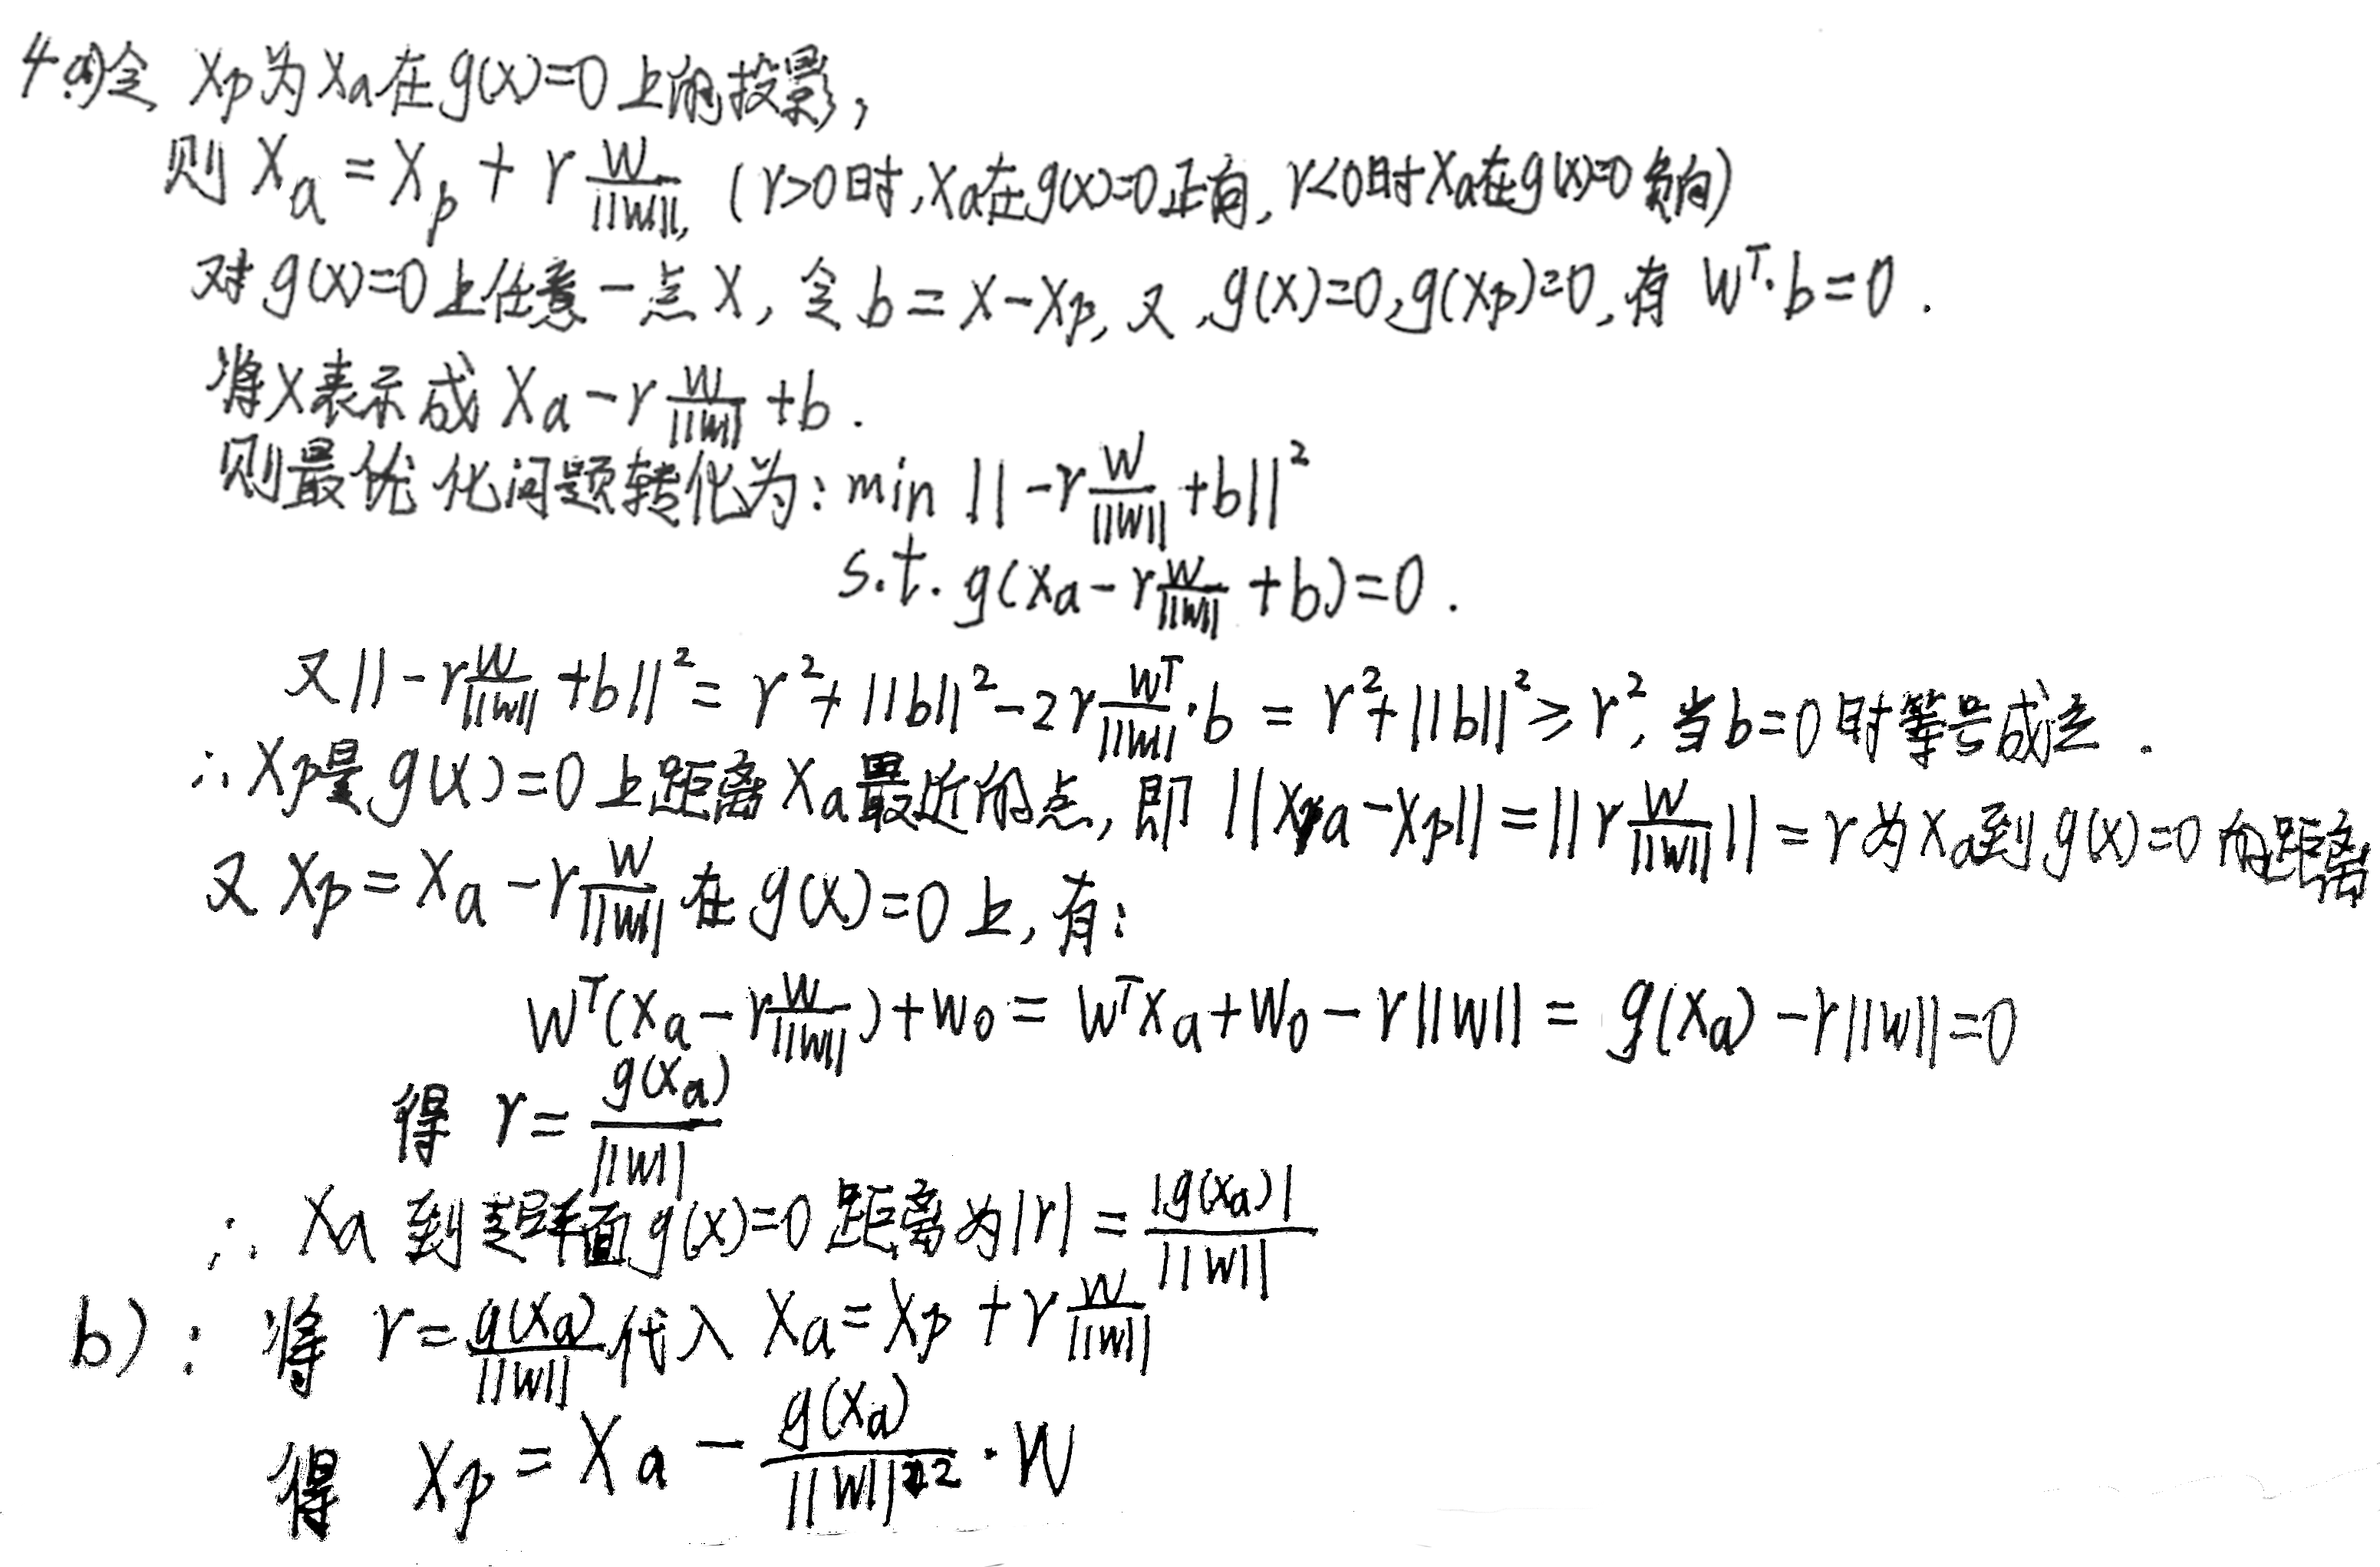 4.a)令 Xp为Xa在g(x)=0上的投影,
则 Xa = Xp + r w/||w||, (r>0时,Xa在g(x)=0正向, r<0时Xa在g(x)=0负向)
对g(x)=0上任意一点X, 令 b = X-Xp, 又,g(x)=0,g(Xp)=0,有 W^T·b=0.
将X表示成 Xa - r w/||w|| + b.
则最优化问题转化为: min ||-r w/||w|| + b||²
s.t. g(Xa - r w/||w|| + b)=0.
又||-r w/||w|| + b||² = r² + ||b||² - 2r w^T/||w||·b = r² + ||b||² ≥ r², 当b=0时等号成立.
∴Xp是g(x)=0上距离Xa最近的点, 即||Xa-Xp|| = ||r w/||w|||| = r为Xa到g(x)=0的距离
又 Xp = Xa - r w/||w|| 在g(x)=0上, 有:
W^T(Xa - r w/||w||) + w₀ = W^T Xa + W₀ - r||w|| = g(Xa) - r||w|| = 0
得 r = g(Xa)/||w||
∴ Xa到超平面g(x)=0距离为|r| = |g(Xa)|/||w||
b): 将 r = g(Xa)/||w|| 代入 Xa = Xp + r w/||w||
得 Xp = Xa - g(Xa)/||w||² · W